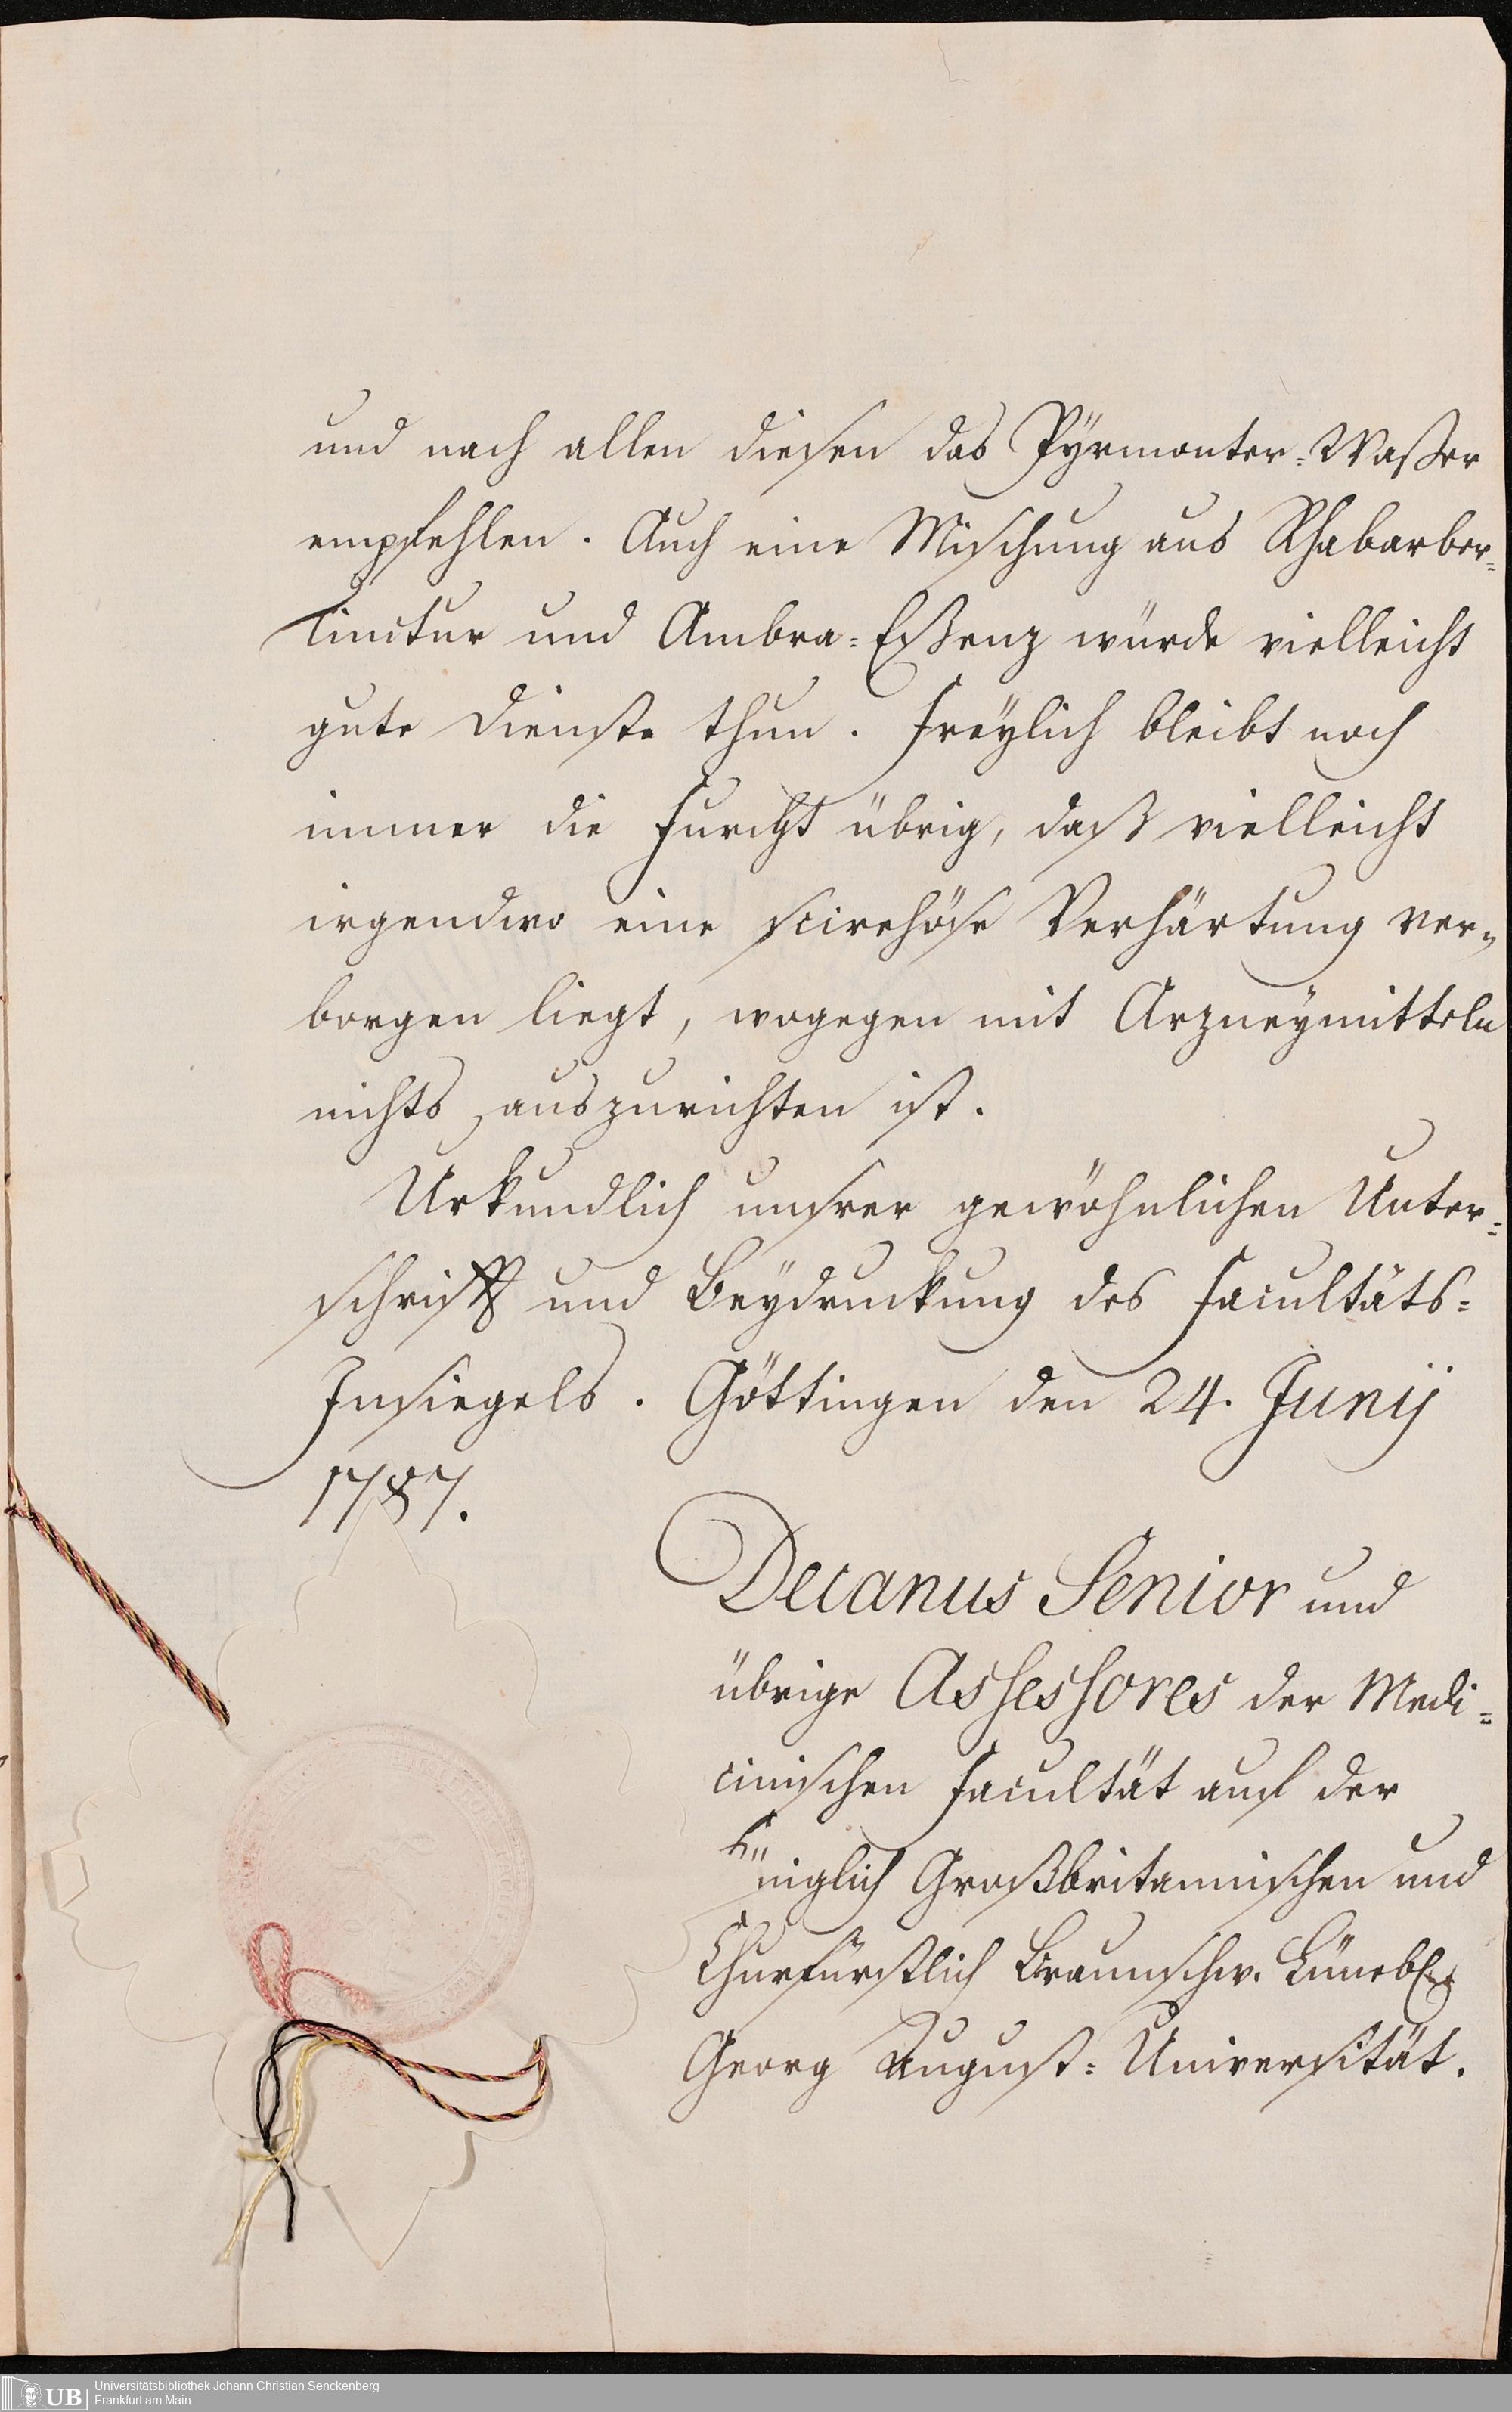 und nach allen diesen das Pÿrmonter-Waßer
empfehlen. Auch eine Mischung aus Rhabarber-
tinctur und Ambra-Eßenz würde vielleicht
gute Dienste thun. Freÿlich bleibt noch
immer die Furcht übrig, daß vielleicht
irgendwo eine scirrhöse Verhärtung ver-
borgen liegt, wogegen mit Arzneÿmitteln
nichts auszurichten ist.
Urkundlich unsrer gewöhnlichen Unter-
schrifft und Beÿdruckung des Facultäts-
Insiegels. Göttingen den 24. Junij
1787.
Decanus Senior und
übrige Assessores der Medi-
cinischen Facultät auf der
Königlich Großbritannischen und
Churfürstlich Braunschw. Lünebl.
Georg August-Universität.
UB
Universitätsbibliothek Johann Christian Senckenberg
Frankfurt am Main